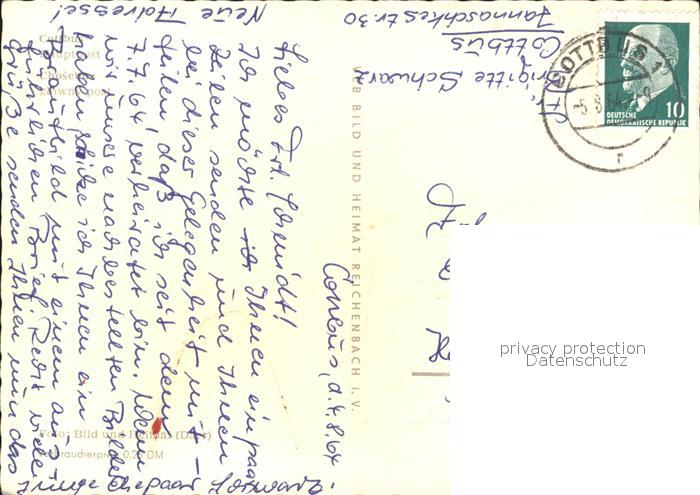 Neue Adresse!
Brigitte Schwarz
Cottbus
Jannaschkestr. 30
Cottbus, d. 4.8.64
Liebes Frl. Schmidt!
Ich möchte Ihnen ein paar
Zeilen senden und Ihnen
bei dieser Gelegenheit mit-
teilen, daß ich seit dem
7.7.64 verheiratet bin. Wenn
wir unsere nachbestellten Bilder
haben, schicke ich Ihnen ein
Brautbild mit einem aus-
führlichen Brief. Recht viele
Grüße senden Ihnen nun das
junge Ehepaar Schwarz
Cottbus
Hauptpost
Chośebuz
Głowny post
Foto: Bild und Heimat
Verbraucherpreis 0,20 DM
VEB BILD UND HEIMAT REICHENBACH I. V.
COTTBUS 1
-5.8.64
10
DEUTSCHE
DEMOKRATISCHE REPUBLIK
privacy protection
Datenschutz